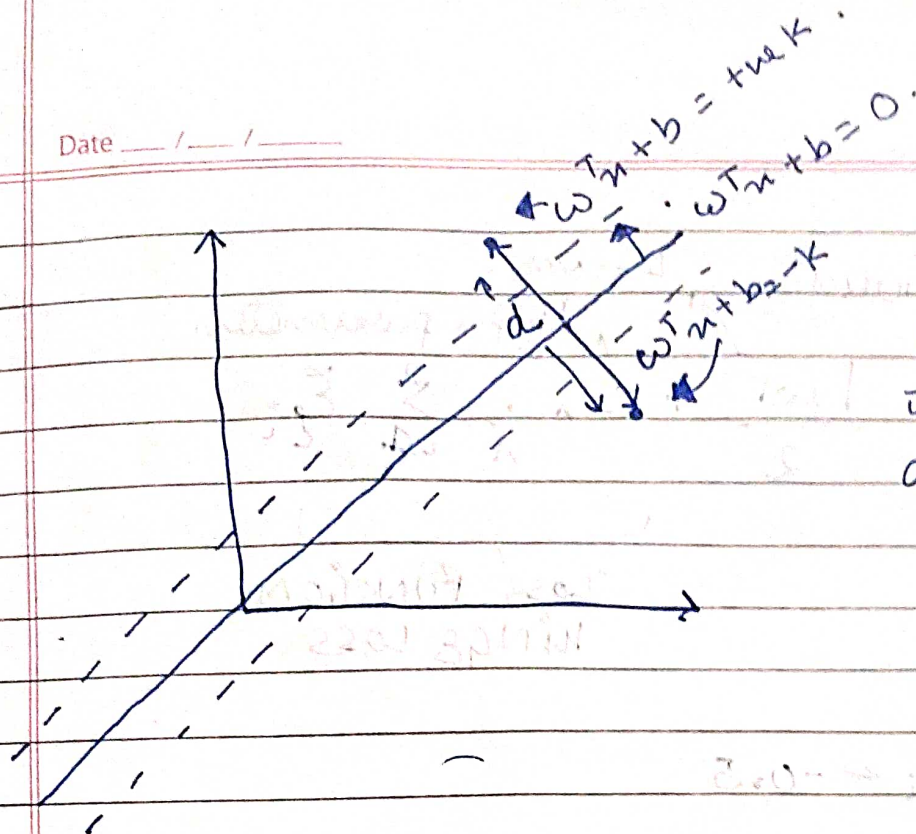 Date ___ / ___ / ______
wᵀx + b = +ve K.
wᵀx + b = 0.
wᵀx + b = -K
d